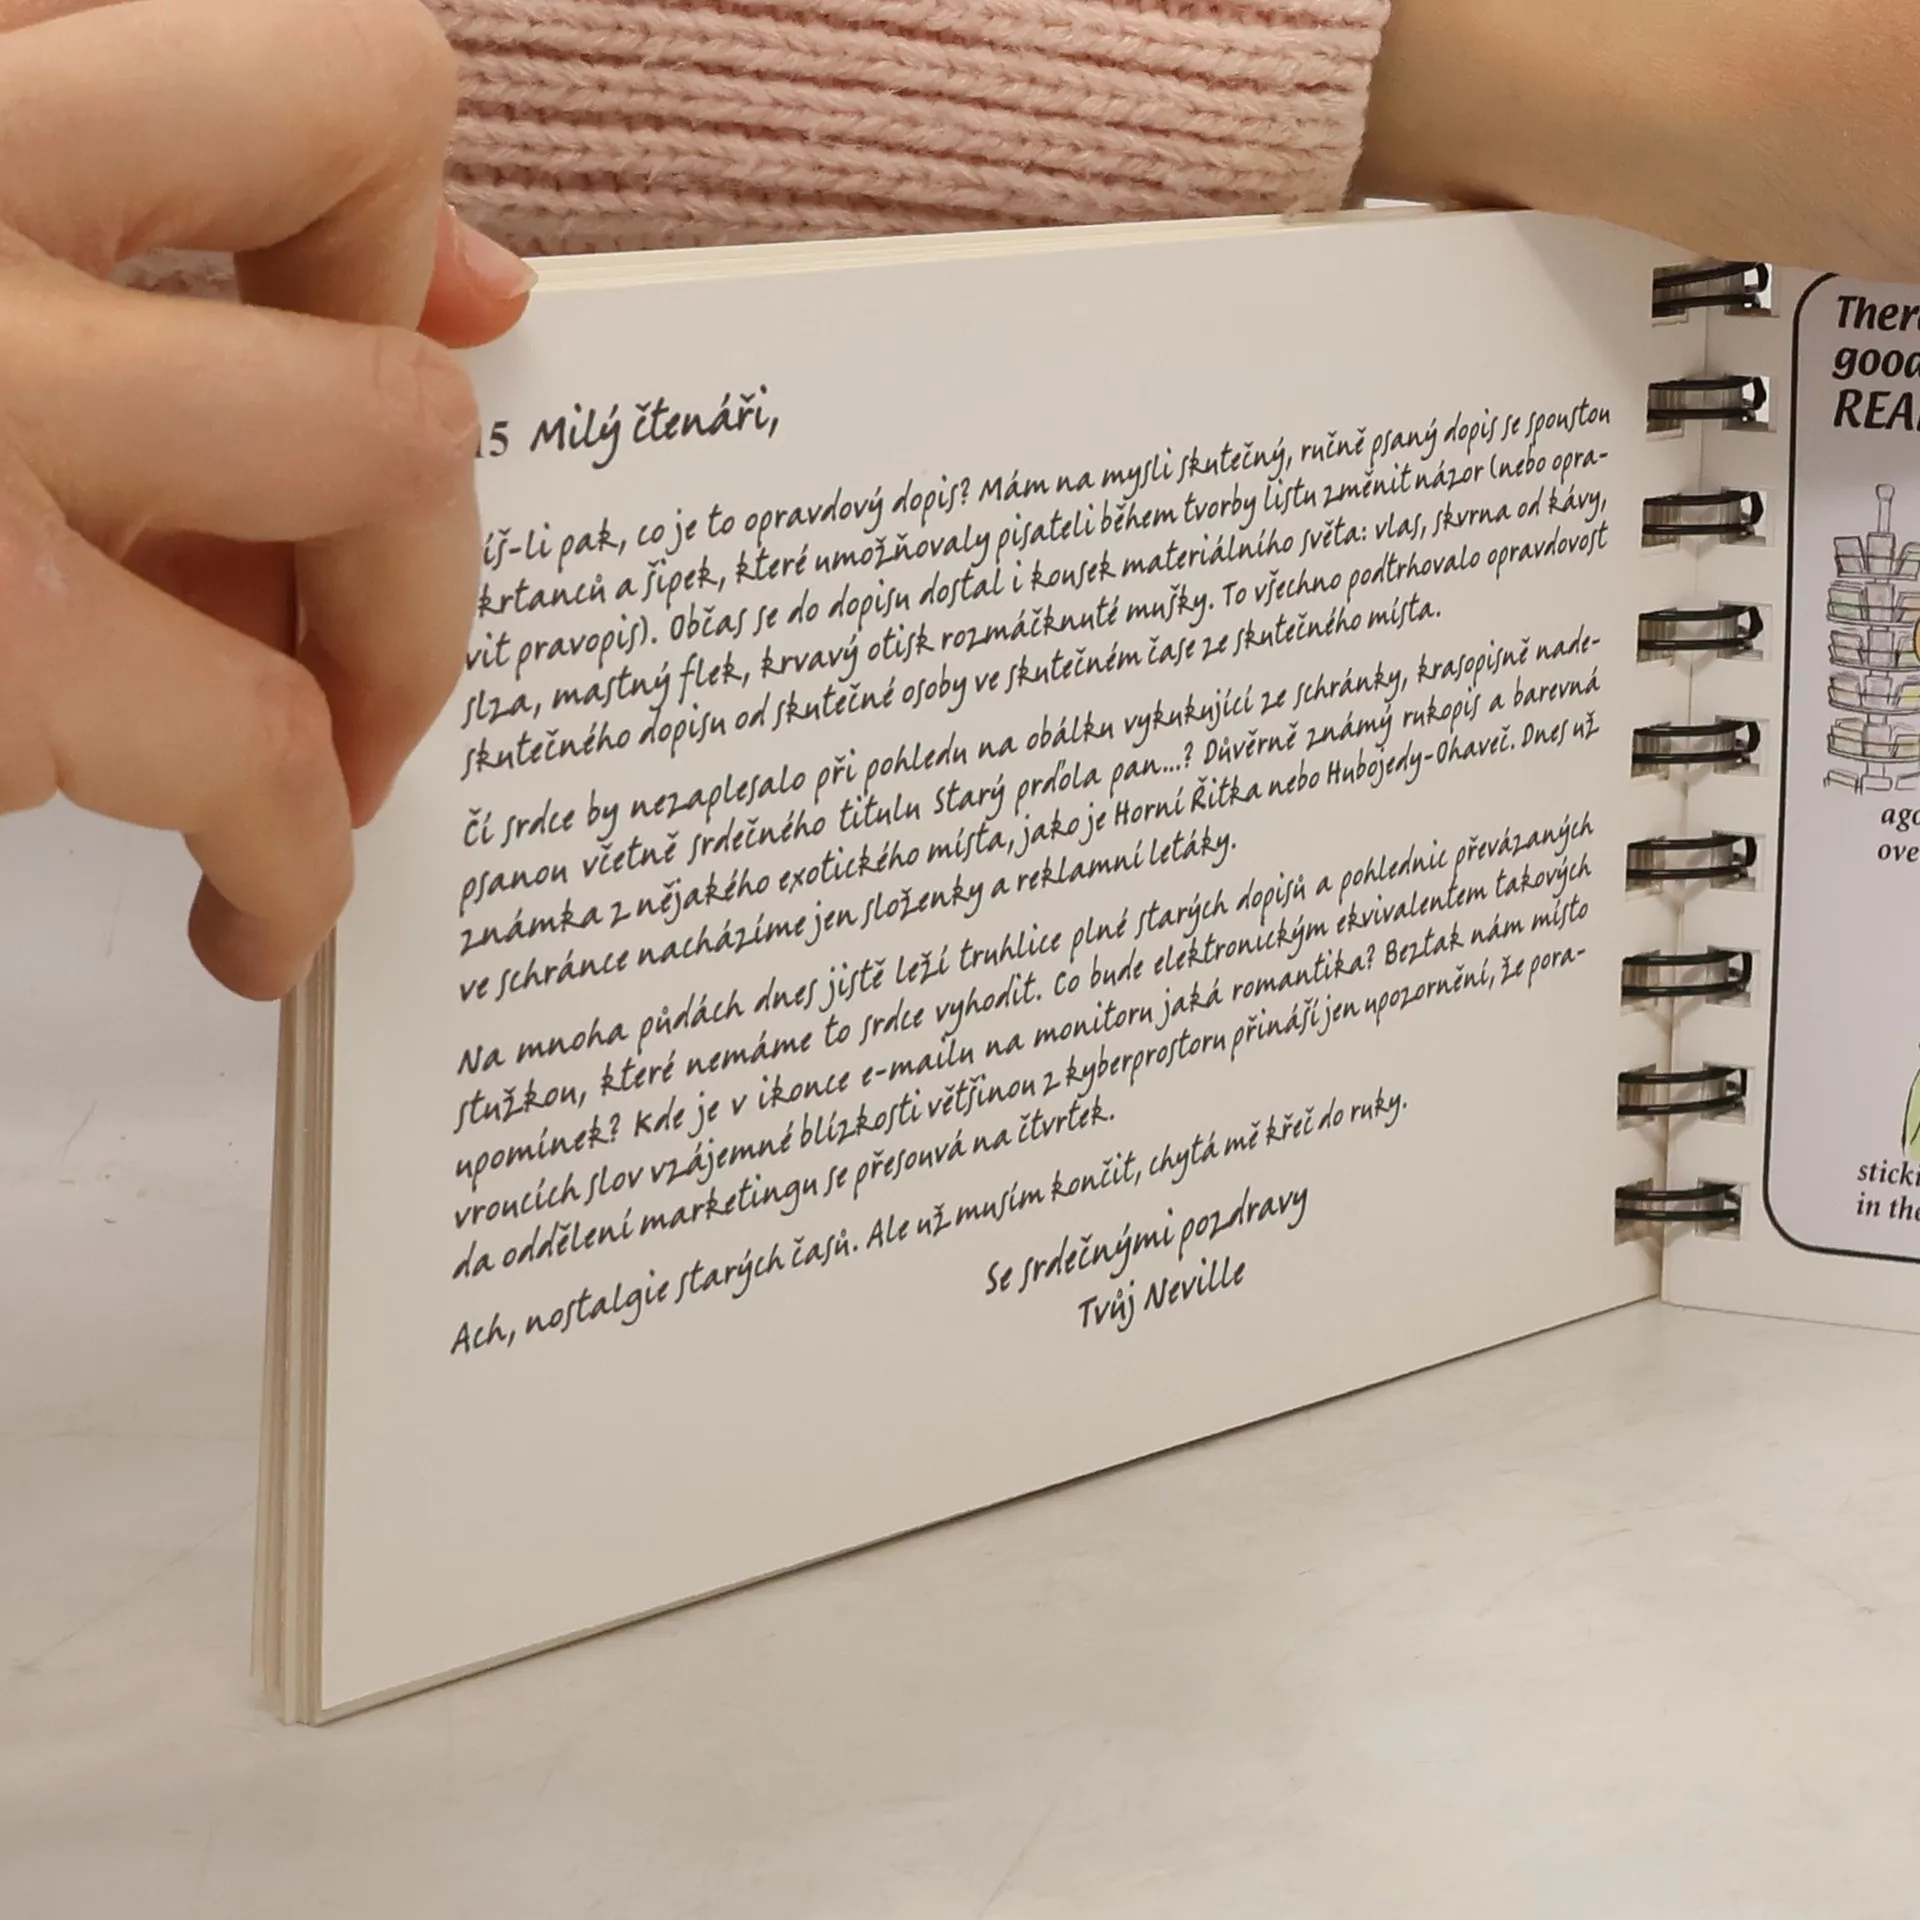 15 Milý čtenáři,
íš-li pak, co je to opravdový dopis? Mám na mysli skutečný, ručně psaný dopis se spoustou
krtanců a šipek, které umožňovaly pisateli během tvorby listu změnit názor (nebo opra-
vit pravopis). Občas se do dopisu dostal i kousek materiálního světa: vlas, skvrna od kávy,
slza, mastný flek, krvavý otisk rozmáčknuté mušky. To všechno podtrhovalo opravdovost
skutečného dopisu od skutečné osoby ve skutečném čase ze skutečného místa.
Čí srdce by nezaplesalo při pohledu na obálku vykukující ze schránky, krasopisně nade-
psanou včetně srdečného titulu Starý prďola pan...? Důvěrně známý rukopis a barevná
známka z nějakého exotického místa, jako je Horní Řitka nebo Hubojedy-Ohaveč. Dnes už
ve schránce nacházíme jen složenky a reklamní letáky.
Na mnoha půdách dnes jistě leží truhlice plné starých dopisů a pohlednic převázaných
stužkou, které nemáme to srdce vyhodit. Co bude elektronickým ekvivalentem takových
upomínek? Kde je v ikonce e-mailu na monitoru jaká romantika? Beztak nám místo
vroucích slov vzájemné blízkosti většinou z kyberprostoru přináší jen upozornění, že pora-
da oddělení marketingu se přesouvá na čtvrtek.
Ach, nostalgie starých časů. Ale už musím končit, chytá mě křeč do ruky.
Se srdečnými pozdravy
Tvůj Neville
Ther
good
REA
ago
ove
sticki
in the